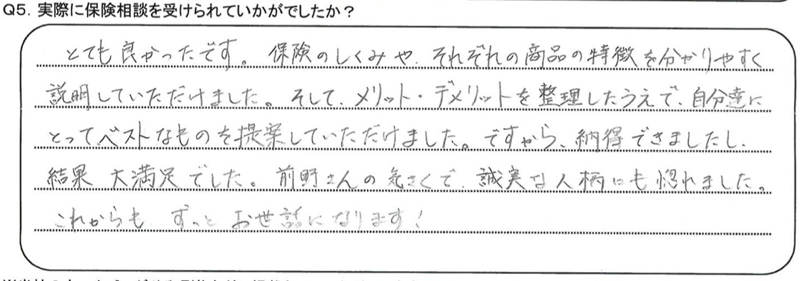 Q5. 実際に保険相談を受けられていかがでしたか？
とても良かったです。保険のしくみや、それぞれの商品の特徴を分かりやすく
説明していただけました。そして、メリット・デメリットを整理したうえで、自分達に
とってベストなものを提案していただけました。ですから、納得できましたし、
結果 大満足でした。前野さんの気さくで、誠実な人柄にも惚れました。
これからも ずっと お世話になります！